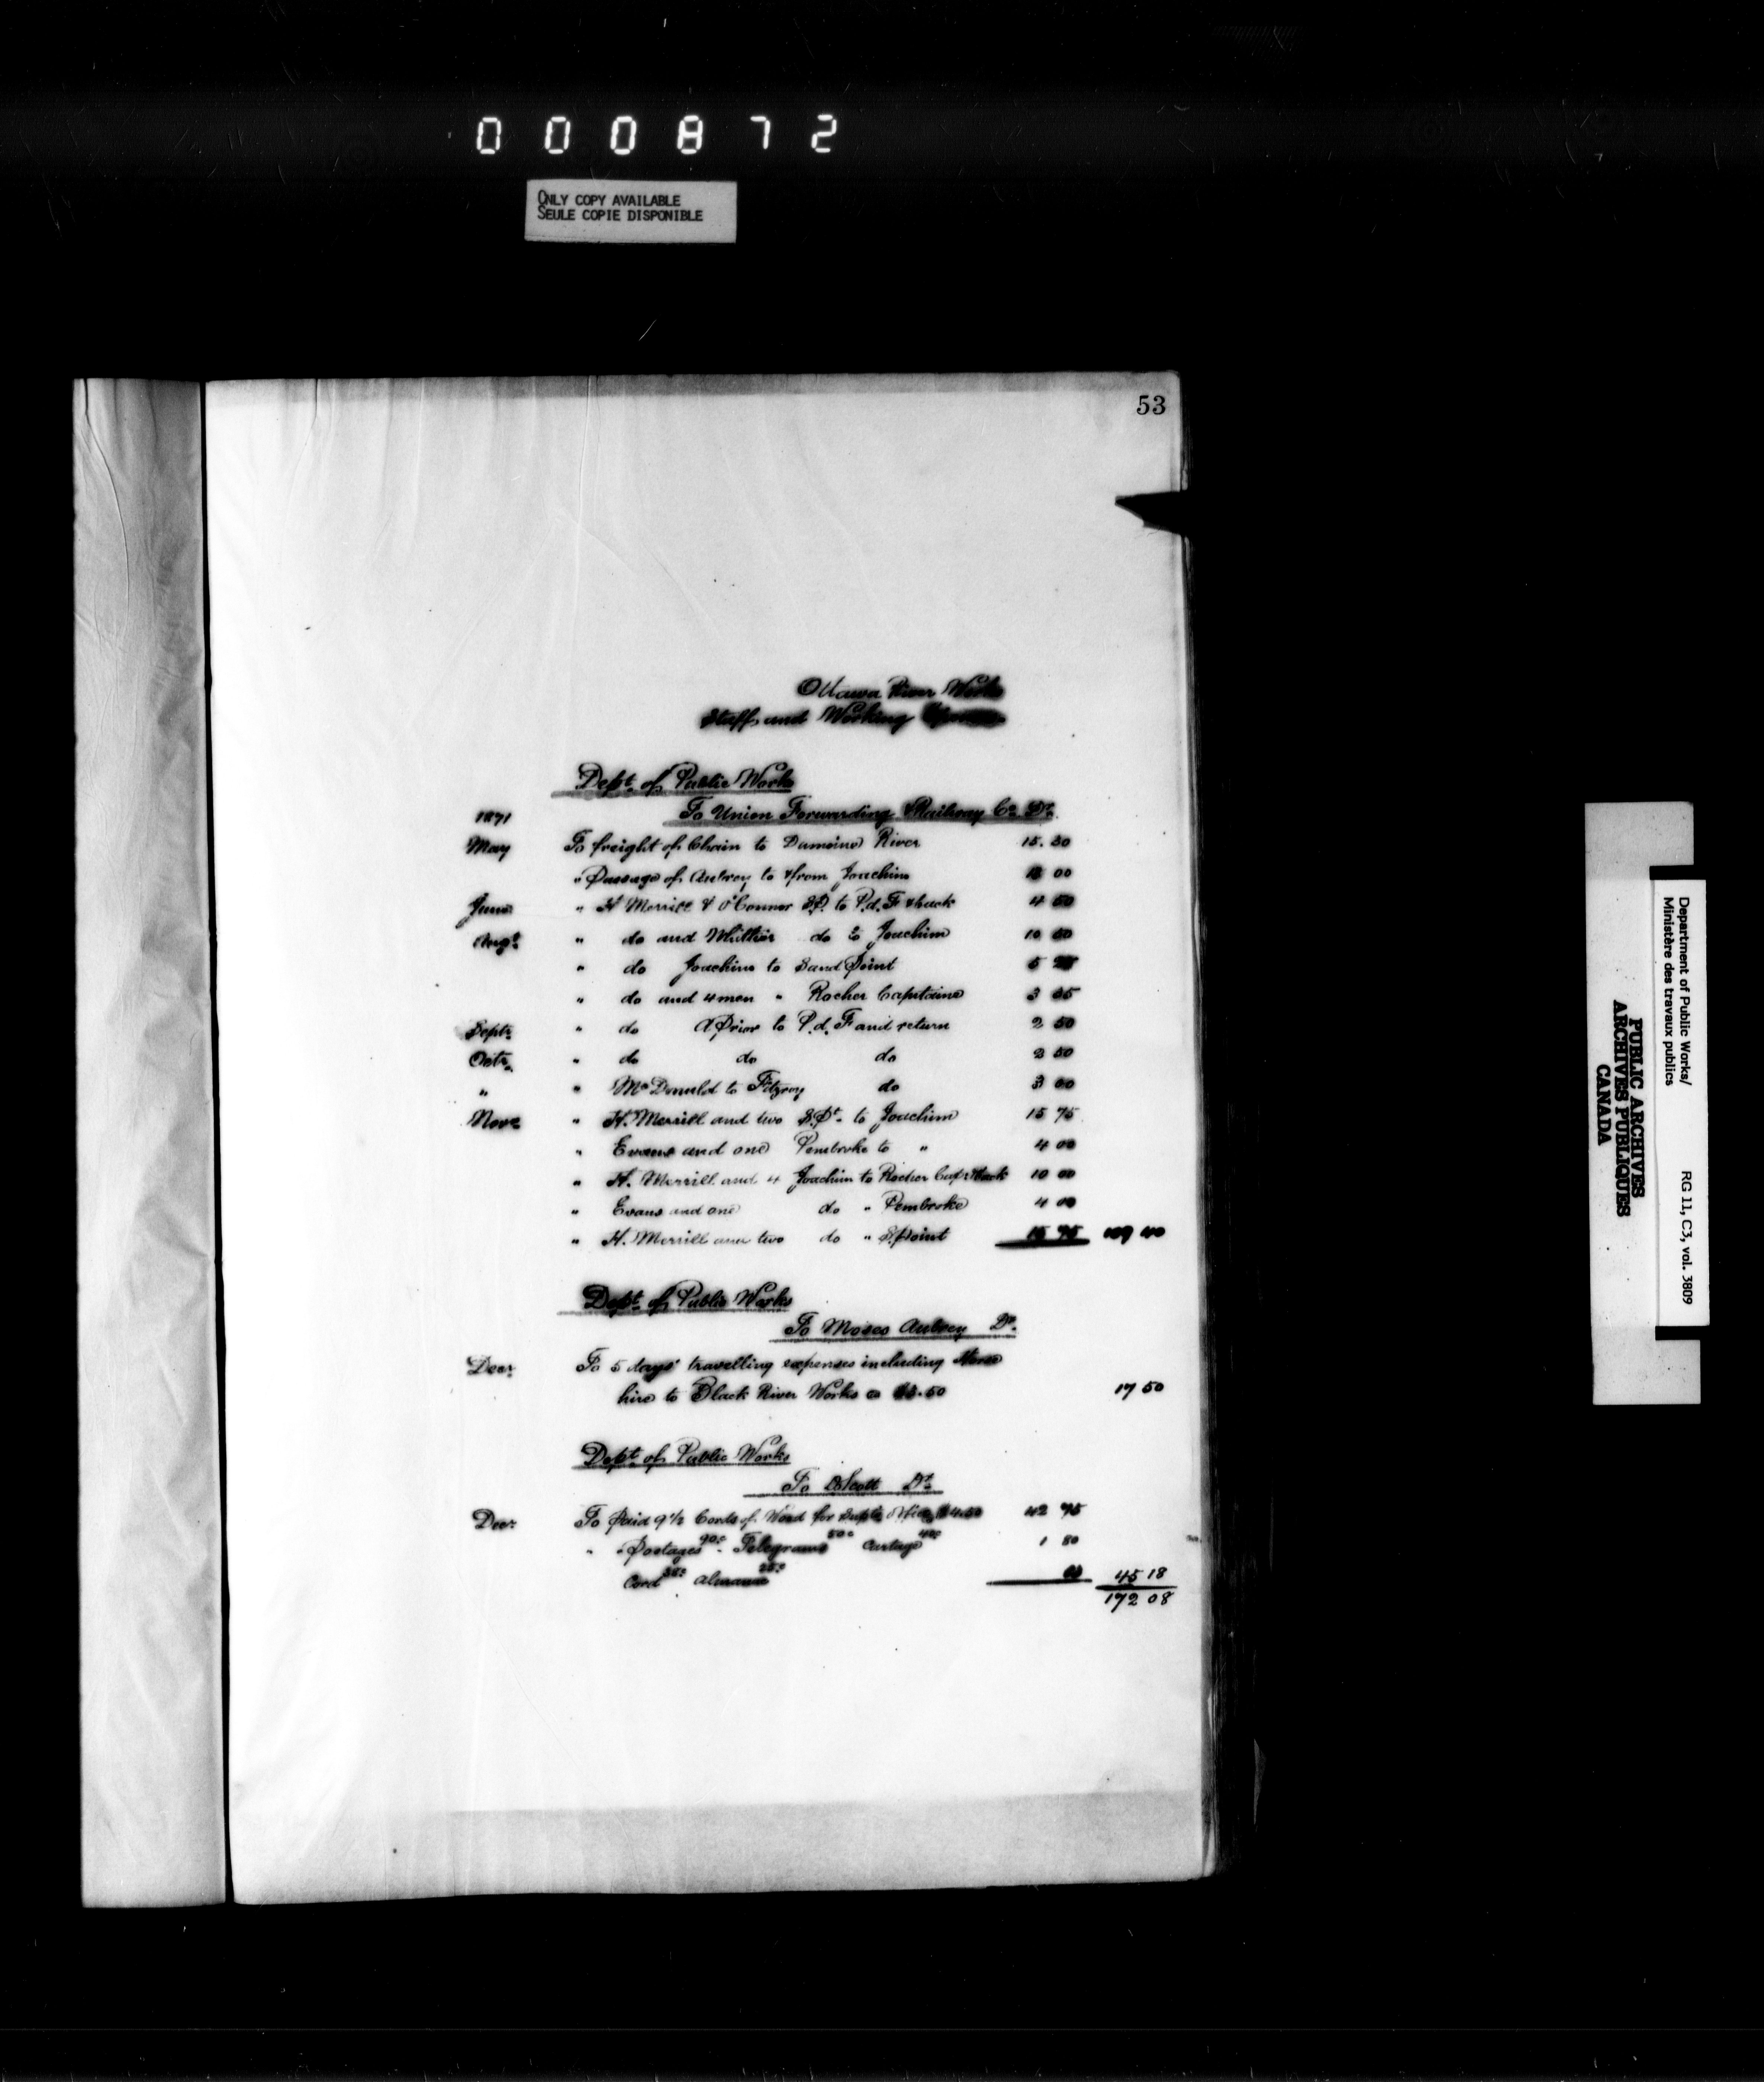 000872
ONLY COPY AVAILABLE
SEULE COPIE DISPONIBLE
53
Ottawa River Works
Staff and Working
Dept. of Public Works
1871 To Union Forwarding & Railway Co. Dr.
May To freight of Chain to Dumoine River 15.30
" Passage of Aubrey to & from Joachim 00
June " H Merrill & O'Connor S.P. to P.d.F & back 4 50
Augt. " do and Whillier do to Joachim 10
" do Joachim to Sand Point 5
" do and 4 men " Rocher Capitaine 3
Septr. " do A Prior to P.d.F and return 2 50
Octr. " do do do 2 50
" " McDonald to Fitzroy do 3 00
Novr. " H. Merrill and two S.Pt. to Joachim 15 75
" Evans and one Pembroke to " 4 00
" H. Merrill and 4 Joachim to Rocher Capt & back 10 00
" Evans and one do " Pembroke 4 00
" H. Merrill and two do " S.point 15 75 109 40
Dept. of Public Works
To Moses Aubrey Dr.
Decr. To 5 days' travelling expenses including Horse
hire to Black River Works @ $3.50 17 50
Dept. of Public Works
To Scott Dr.
Decr. To Paid 9 1/2 Cords of Wood for Supts Office $4.50 42 75
" " Postages 90c. Telegrams 50c Cartage 40c 1 80
Cord 38c Almanac 25c 63 45 18
172 08
Department of Public Works/
Ministère des travaux publics
RG 11, C3, vol. 3809
PUBLIC ARCHIVES
ARCHIVES PUBLIQUES
CANADA